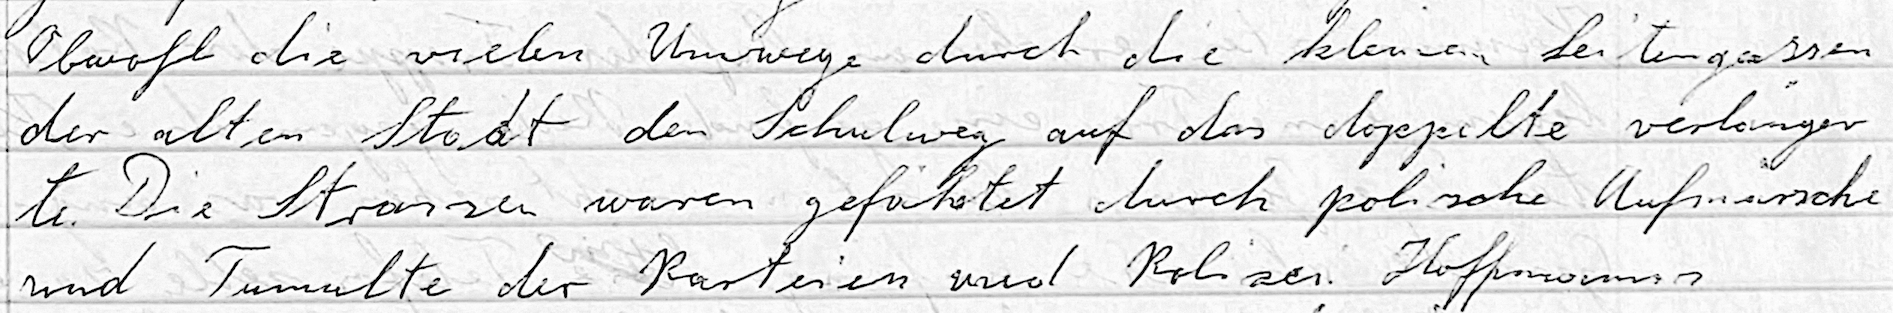 Obwohl die vielen Umwege durch die kleinen Seitengassen
der alten Stadt den Schulweg auf das doppelte verlänger
te. Die Strassen waren gefährtet durch polische Aufmärsche
und Tumulte der Parteien und Polizei. Hoffmanns